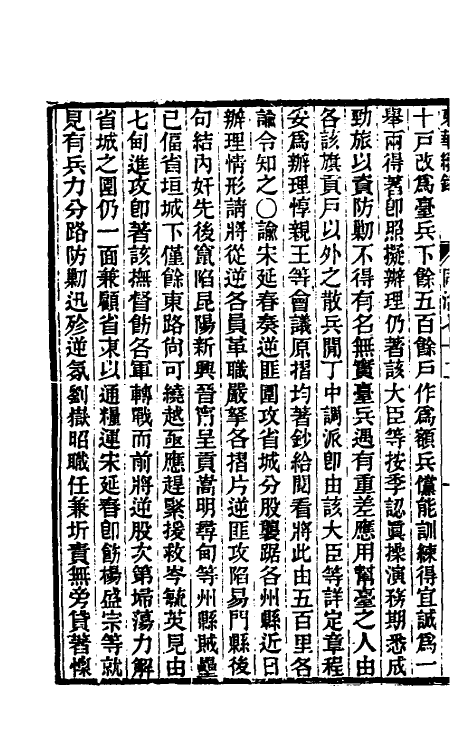 十戸改爲臺兵下餘五百餘戸作爲額兵儻能訓練得宜誠爲一
舉兩得著卽照擬辦理仍著該大臣等按季認眞操演務期悉成
勁旅以資防勦不得有名無實臺兵遇有重差應用幫臺之人由
各該旗貢戸以外之散兵閒丁中調派卽由該大臣等詳定章程
妥爲辦理惇親王等會議原摺均著鈔給閱看將此由五百里各
諭令知之〇諭宋延春奏逆匪圍攻省城分股襲踞各州縣近日
辦理情形請將從逆各員革職嚴拏各摺片逆匪攻陷易門縣後
句結內奸先後竄陷昆陽新興晉甯呈貢嵩明尋甸等州縣賊壘
已偪省垣城下僅餘東路尙可繞越亟應趕緊援救岑毓英見由
七甸進攻卽著該撫督飭各軍轉戰而前將逆股次第埽蕩力解
省城之圍仍一面兼顧省東以通糧運宋延春卽飭楊盛宗等就
見有兵力分路防勦迅殄逆氛劉嶽昭職任兼圻責無旁貸著懍